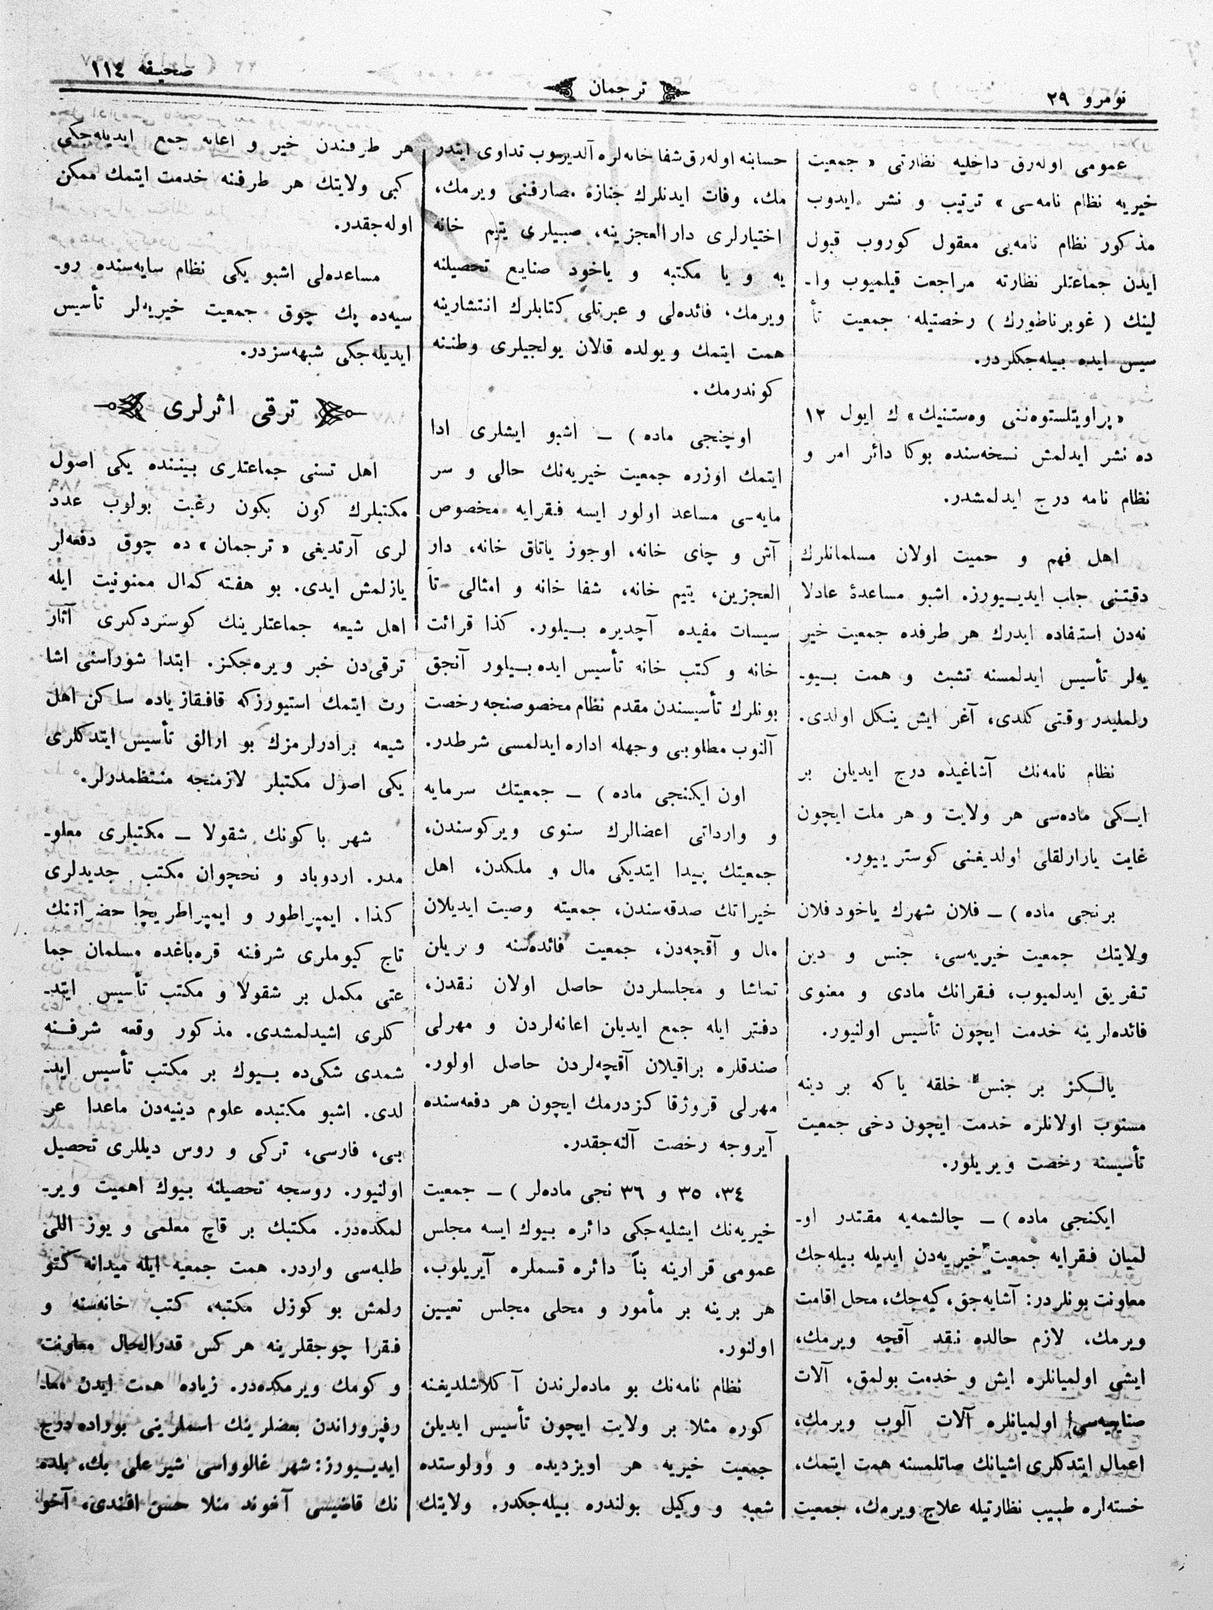 نومرو ٢٩
ترجمان
صحيفه ١١٤
عمومى اوله‌رق داخليه نظارتى « جمعيت
خيريه نظام نامه‌سى » ترتيب و نشر ايدوب
مذكور نظام نامه‌يى معقول كوروب قبول
ايدن جماعتلر نظارته مراجعت قيلميوب وا-
لينك ( غوبرناطورك ) رخصتيله جمعيت تأ
سيس ايده بيله‌جكلردر.
« پراويتلستوه‌ننى وه‌ستنيك » ك ايول ١٢
ده نشر ايدلمش نسخه‌سنده بوكا دائر امر و
نظام نامه درج ايدلمشدر.
اهل فهم و حميت اولان مسلمانلرك
دقتنى جلب ايديـيورز. اشبو مساعدهٔ عادلا
نه‌دن استفاده ايدرك هر طرفده جمعيت خير
يه‌لر تأسيس ايدلمسنه تشبث و همت بـيو-
رلمليدر وقتى كلدى، آغر ايش ينكل اولدى.
نظام نامه‌نك آشاغيده درج ايديان بر
ايـكى ماده‌سى هر ولايت و هر ملت ايچون
غايت يارارلقلى اولديغنى كوستر ييور.
برنجى ماده ) — فلان شهرك ياخود فلان
ولايتك جمعيت خيريه‌سى، جنس و دين
تفريق ايدلميوب، فقرانك مادى و معنوى
فائده‌لرينه خدمت ايچون تأسيس اولنيور.
يالـكز بر جنس خلقه ياكه بر دينه
منسوب اولانلره خدمت ايچون دخى جمعيت
تأسيسنه رخصت ويريلور.
ايكنجى ماده ) — چالشمه‌يه مقتدر او-
لميان فقرايه جمعيت خيريه‌دن ايديله بيله‌جك
معاونت بونلردر: آشايه‌جق، كيه‌جك، محل اقامت
ويرمك، لازم حالده نقد آقچه ويرمك،
ايشى اولميانلره ايش و خدمت بولمق، آلات
صناعيه‌سى اولميانلره آلات آلوب ويرمك،
اعمال ايتدكلرى اشيانك صاتلمسنه همت ايتمك،
خسته‌لره طبيب نظارتيله علاج ويرمك، جمعيت
حسابنه اوله‌رق شفا خانه‌لره آلديروب تداوى ايتدر
مك، وفات ايدنلرك جنازه مصارفنى ويرمك،
اختيارلرى دارالعجزينه، صبيلرى يتيم خانه
يه و يا مكتبه و ياخود صنايع تحصيلنه
ويرمك، فائده‌لى و عبرتلى كتابلرك انتشارينه
همت ايتمك ويولده قالان يولجيلرى وطننه
كوندرمك.
اوچنجى ماده ) — اشبو ايشلرى ادا
ايتمك اوزره جمعيت خيريه‌نك حالى و سر
مايه‌سى مساعد اولور ايسه فقرايه مخصوص
آش و چاى خانه، اوجوز ياتاق خانه، دار
العجزين، يتيم خانه، شفا خانه و امثالى تأ
سيسات مفيده آچديره بـيلور. كذا قرائت
خانه و كتب خانه تأسيس ايده بـيلور آنجق
بونلرك تأسيسندن مقدم نظام مخصوصنجه رخصت
آلنوب مطلوبى وجهله اداره ايدلمسى شرطدر.
اون ايكنجى ماده ) — جمعيتك سرمايه
و وارداتى اعضالرك سنوى ويركوسندن،
جمعيتك پيدا ايتديكى مال و ملكدن، اهل
خيراتك صدقه‌سندن، جمعيته وصيت ايديلان
مال و آقچه‌دن، جمعيت فائده‌سنه ويريلن
تماشا و مجلسلردن حاصل اولان نقدن،
دفتر ايله جمع ايديلن اعانه‌لردن و مهرلى
صندقلره براقيلان آقچه‌لردن حاصل اولور.
مهرلى قروژقا كزدرمك ايچون هر دفعه‌سنده
آيروجه رخصت آلنه‌جقدر.
٣٤، ٣٥ و ٣٦ نجى ماده‌لر ) — جمعيت
خيريه‌نك ايشليه‌جكى دائره بيوك ايسه مجلس
عمومى قرارينه بنأ دائره قسملره آيريلوب،
هر برينه بر مأمور و محلى مجلس تعيين
اولنور.
نظام نامه‌نك بو ماده‌لرندن آكلاشلديغنه
كوره مثلا بر ولايت ايچون تأسيس ايديلن
جمعيت خيريه هر اويزديده و وولوستده
شعبه و وكيل بولندره بيله‌جكدر. ولايتك
هر طرفندن خير و اعانه جمع ايديله‌جكى
كبى ولايتك هر طرفنه خدمت ايتمك ممكن
اوله‌جقدر.
مساعده‌لى اشبو يكى نظام سايه‌سنده رو-
سيه‌ده پك چوق جمعيت خيريه‌لر تأسيس
ايديله‌جكى شبهه‌سزدر.
ترقى اثرلرى
اهل تسنى جماعتلرى بيننده يكى اصول
مكتبلرك كون بكون رغبت بولوب عدد
لرى آرتديغى « ترجمان » ده چوق دفعه‌لر
يازلمش ايدى. بو هفته كمال ممنونيت ايله
اهل شيعه جماعتلرينك كوستردكلرى آثار
ترقى‌دن خبر ويره‌جكز. ابتدا شوراسنى اشا
رت ايتمك استيورزكه قافقازياده ساكن اهل
شيعه برادرلرمزك بو ارالق تأسيس ايتدكلرى
يكى اصول مكتبلر لازمنجه منتظمدرلر.
شهر باكونك شقولا — مكتبلرى معلو-
مدر. اردوباد و نخچوان مكتب جديدلرى
كذا. ايمپراطور و ايمپراطريچا حضراتنك
تاج كيوملرى شرفنه قره‌باغده مسلمان جما
عتى مكمل بر شقولا و مكتب تأسيس ايتد-
كلرى اشيدلمشدى. مذكور وقعه شرفـنه
شمدى شكى‌ده بـيوك بر مكتب تأسيس ايد-
لدى. اشبو مكتبده علوم دينيه‌دن ماعدا عر
بى، فارسى، تركى و روس ديللرى تحصيل
اولنيور. روسجه تحصيلنه بيوك اهميت وير-
لمكده‌در. مكتبك بر قاچ معلمى و يوز اللى
طلبه‌سى واردر. همت جمعيه ايله ميدانه كتو
رلمش بو كوزل مكتبه، كتب خانه‌سنه و
فقرا چوجقلرينه هركس قدرالحال معاونت
و كومك ويرمكده‌در. زياده همت ايدن معا-
رفپروراندن بعضلرينك اسملرينى بوراده درج
ايديـيورز: شهر غالوواسى شير على بك، بلده
نك قاضيسى آخوند منلا حسن افندى، آخو